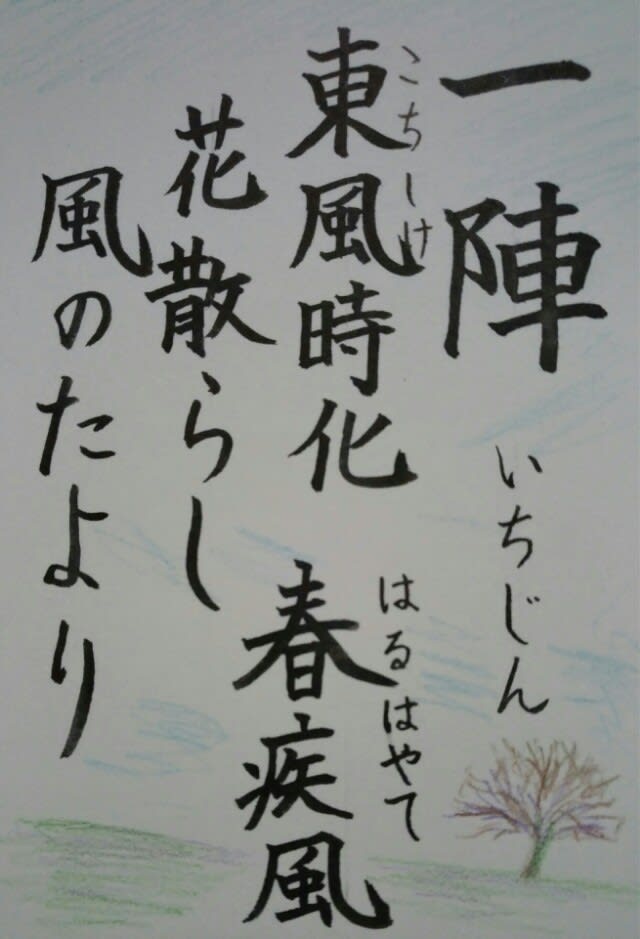 一陣 いちじん
東風時化 こちしけ
春疾風 はるはやて
花散らし
風のたより